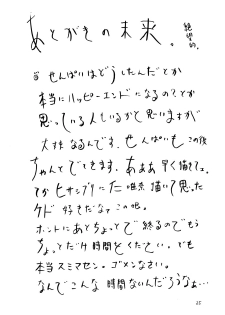 あとがきの未来。絶望的。
せんぱいはどうしたんだとか
本当にハッピーエンドになるのとか
思っている人もいるかと思いますが
大丈夫なるんです、せんぱいもこの後
ちゃんとでてきます、あああ早く描きてえ。
てか
描いて思った
ケド 好きだなァこの娘。
ホントにあとちょっとで終るのでもう
ちょっとだけ時間をください。でも
本当スミマセン。ゴメンなさい。
なんでこんな時間ないんだろうなぁ…